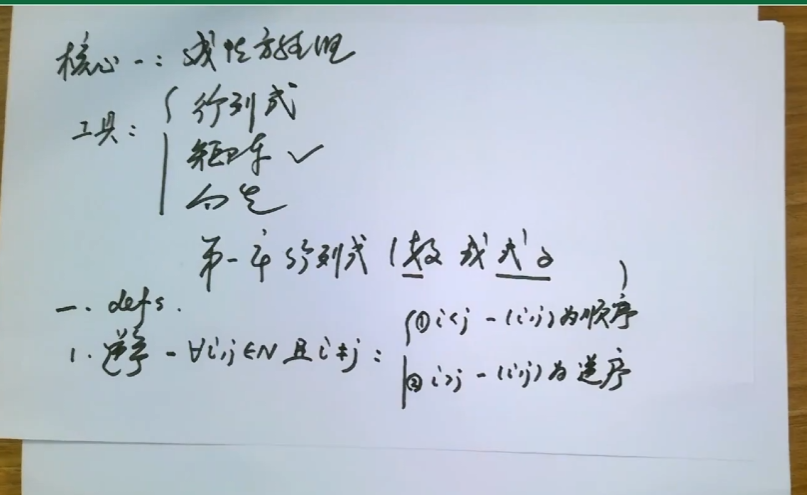 核心一: 线性方程组
工具: { 行列式
矩阵 ✓
向量
第一章 行列式 (数 或 式子)
一. defs.
1. 逆序 - ∀i,j∈N 且 i≠j:
① i<j - (i,j) 为顺序
② i>j - (i,j) 为逆序